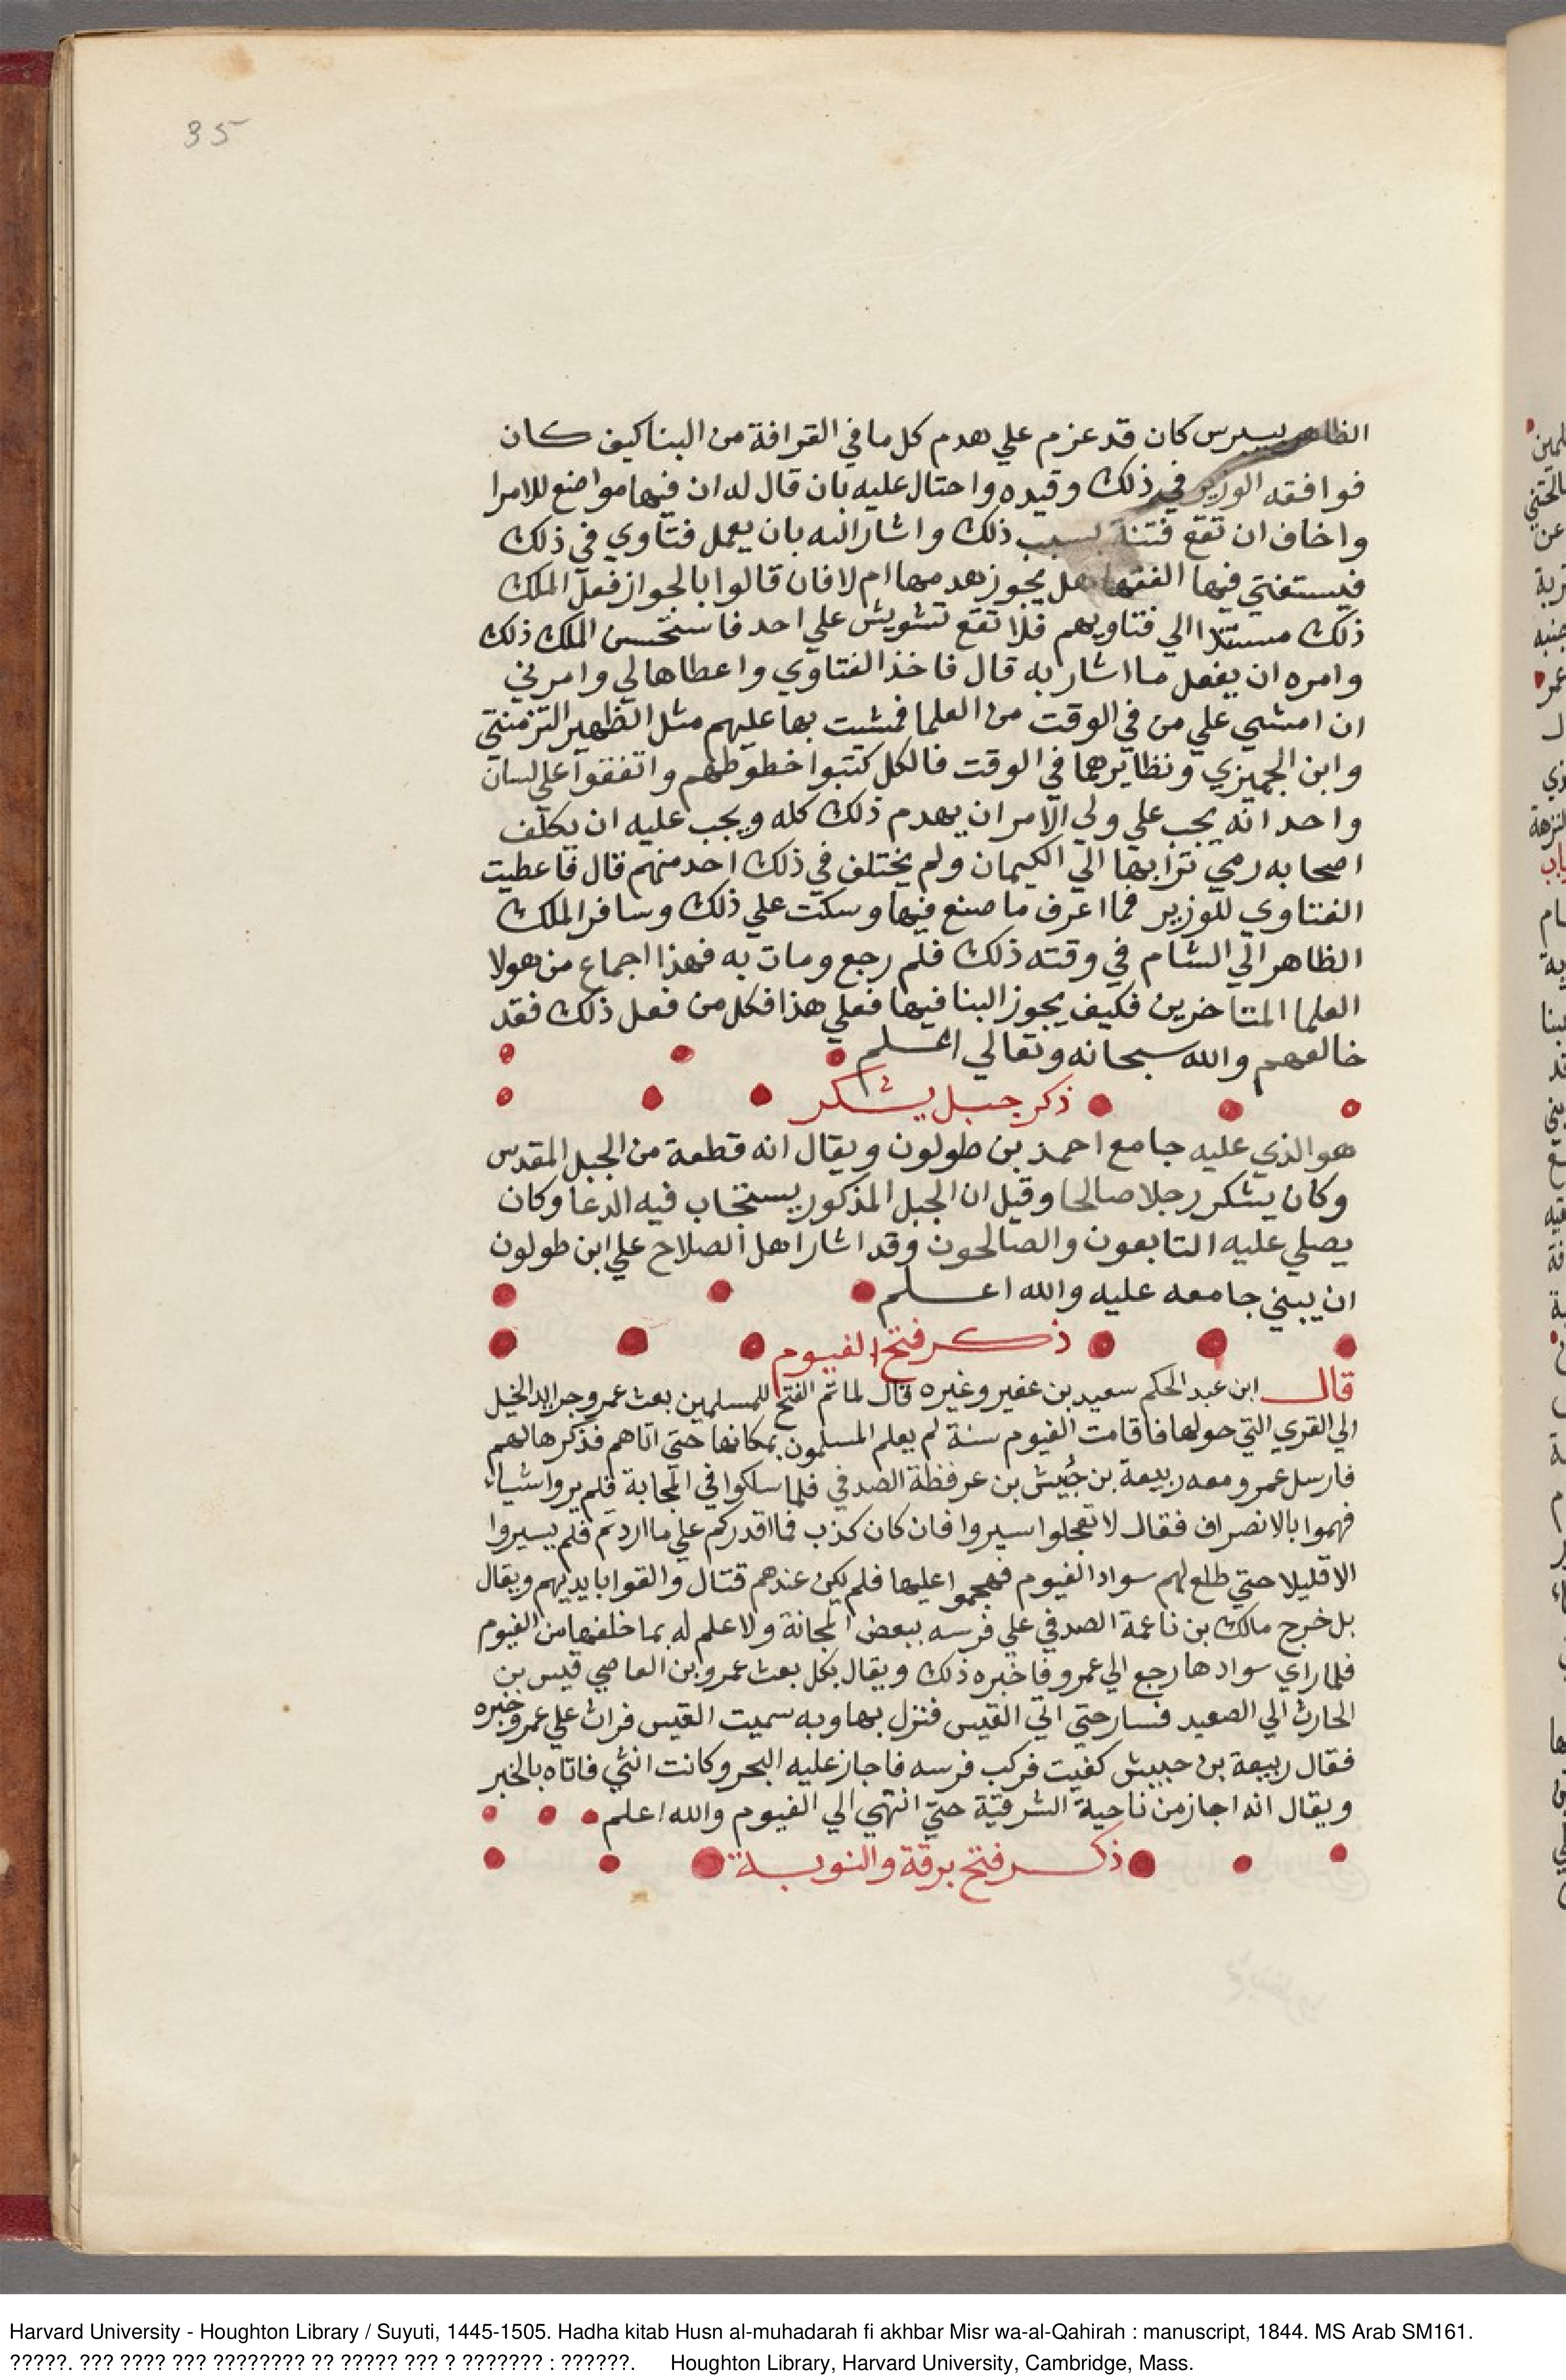 35
الظاهر بيبرس كان قد عزم علي هدم كل ما في القرافة من البنا كيف كان
فوافقه الوزير في ذلك وقيده واحتال عليه بان قال له ان فيها مواضع للامرا
واخاف ان تقع فتنة بسبب ذلك واشار اليه بان يعمل فتاوي في ذلك
فيستفتي فيها الفقها هل يجوز هدمها ام لا فان قالوا بالجواز فعل الملك
ذلك مستندا الي فتاويهم فلا تقع تشويش علي احد فاستحسن الملك ذلك
وامره ان يفعل ما اشار به قال فاخذ الفتاوي واعطاها لي وامرني
ان امشي علي من في الوقت من العلما فمشيت بها عليهم مثل الظهير التزمنتي
وابن الجميزي ونظايرهما في الوقت فالكل كتبوا خطوطهم واتفقوا علي لسان
واحد انه يجب علي ولي الامر ان يهدم ذلك كله ويجب عليه ان يكلف
اصحابه رمي ترابها الي الكيمان ولم يختلف في ذلك احد منهم قال فاعطيت
الفتاوي للوزير فما اعرف ما صنع فيها وسكت علي ذلك وسافر الملك
الظاهر الي الشام في وقته ذلك فلم رجع ومات به فهذا اجماع من هولا
العلما المتاخرين فكيف يجوز البنا فيها فعلي هذا فكل من فعل ذلك فقد
خالفهم والله سبحانه وتعالي اعلم
ذكر جبل يشكر
هو الذي عليه جامع احمد بن طولون ويقال انه قطعة من الجبل المقدس
وكان يشكر رجلا صالحا وقيل ان الجبل المذكور يستجاب فيه الدعا وكان
يصلي عليه التابعون والصالحون وقد اشار اهل الصلاح علي ابن طولون
ان يبني جامعه عليه والله اعلم
ذكر فتح الفيوم
قال ابن عبد الحكم سعيد بن عفير وغيره قال لما تم الفتح للمسلمين بعث عمرو جرايد الخيل
الي القري التي حولها فاقامت الفيوم سنة لم يعلم المسلمون بمكانها حتي اتاهم فذكرها لهم
فارسل عمرو معه ربيعة بن حُبيش بن عرفظة الصدفي فلما سلكوا في المجابة فلم يروا شياء
فهموا بالانصراف فقال لا تعجلوا سيروا فان كان كذب فما اقدركم علي ما اردتم فلم يسيروا
الا قليلا حتي طلع لهم سواد الفيوم فهجموا عليها فلم يكن عندهم قتال والقوا بايديهم ويقال
بل خرج مالك بن ناعمة الصدفي علي فرسه ببعض المجانة ولا علم له بما خلفها من الفيوم
فلما راي سوادها رجع الي عمرو فاخبره ذلك ويقال بكل بعث عمرو بن العاصي قيس بن
الحارث الي الصعيد فسار حتي اتي القيس فنزل بها وبه سميت القيس فراث علي عمرو خبره
فقال ربيعة بن حبيش كفيت فركب فرسه فاجاز عليه البحر وكانت انثي فاتاه بالخبر
ويقال انه اجاز من ناحية الشرقية حتي انتهي الي الفيوم والله اعلم
ذكر فتح برقة والنوبة
Harvard University - Houghton Library / Suyuti, 1445-1505. Hadha kitab Husn al-muhadarah fi akhbar Misr wa-al-Qahirah : manuscript, 1844. MS Arab SM161.
?????. ??? ???? ??? ???????? ?? ????? ??? ? ??????? : ??????. Houghton Library, Harvard University, Cambridge, Mass.